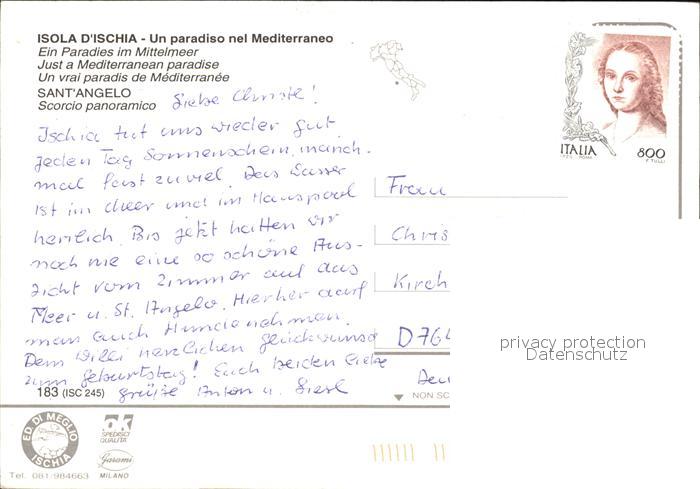 ISOLA D'ISCHIA - Un paradiso nel Mediterraneo
Ein Paradies im Mittelmeer
Just a Mediterranean paradise
Un vrai paradis de Méditerranée
SANT'ANGELO
Scorcio panoramico
Liebe Christe!
Ischia tut uns wieder gut.
Jeden Tag Sonnenschein, manch-
mal fast zuviel. Das Wasser
ist im Meer und im Hauspool
herrlich. Bis jetzt hatten wir
noch nie eine so schöne Aus-
sicht vom Zimmer auf das
Meer u. St. Angelo. Hierher darf
man auch Hunde nehmen.
Dem Willi herzlichen Glückwunsch
zum Geburtstag! Euch beiden liebe
Grüße Anton u. Liesl
183 (ISC 245)
Frau
Chris
Kirch
D 764
Deu
NON SC
ITALIA
800
F. TULLI
privacy protection
Datenschutz
ED. DI MEGLIO
ISCHIA
Tel. 081/984663
OK
SPEDISCI
QUALITÀ
Garami
MILANO